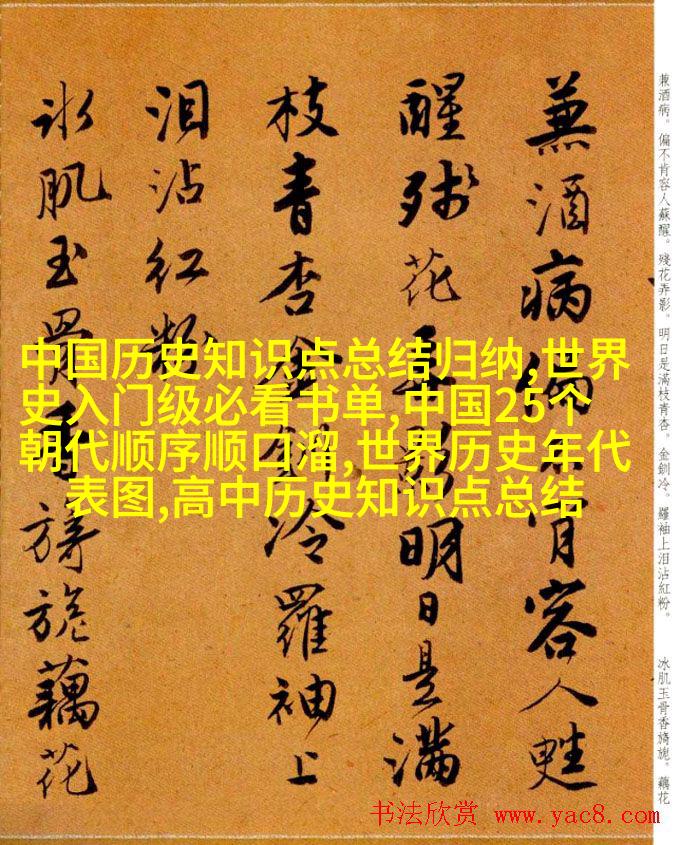 兼酒病偏不肯容人甦
醒残花弄影明日是滿
枝青杏金釧冷羅袖上
泪沾红粉
冰肌玉骨香旖旎藕花
中国历史知识点总结归纳,世界
史入门级必看书单,中国25个
朝代顺序顺口溜,世界历史年代
表图,高中历史知识点总结
兼酒病。偏不肯容人蘇醒。殘花弄影。明日是滿枝青杏。金釧冷。羅袖上泪沾紅粉。
冰肌玉骨香旖旎。藕花
书法欣赏 www.yac8.com